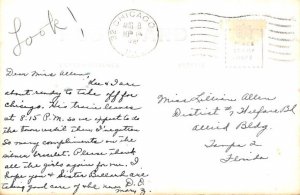 Look!
CHICAGO
Dear Miss Allen,
Lee & I are
about ready to take off for
Chicago. His train leaves
at 8:15 P.M. so we expect to do
the town until then. I've gotten
so many compliments on the
silver bracelet. Please thank
all the girls again for me. I
hope you & Sister Bullock are
taking good care of the new D.S.
Mary J.
Miss Lillian Allen
District #7 Welfare Bd
Allied Bldg.
Tampa 2
Florida